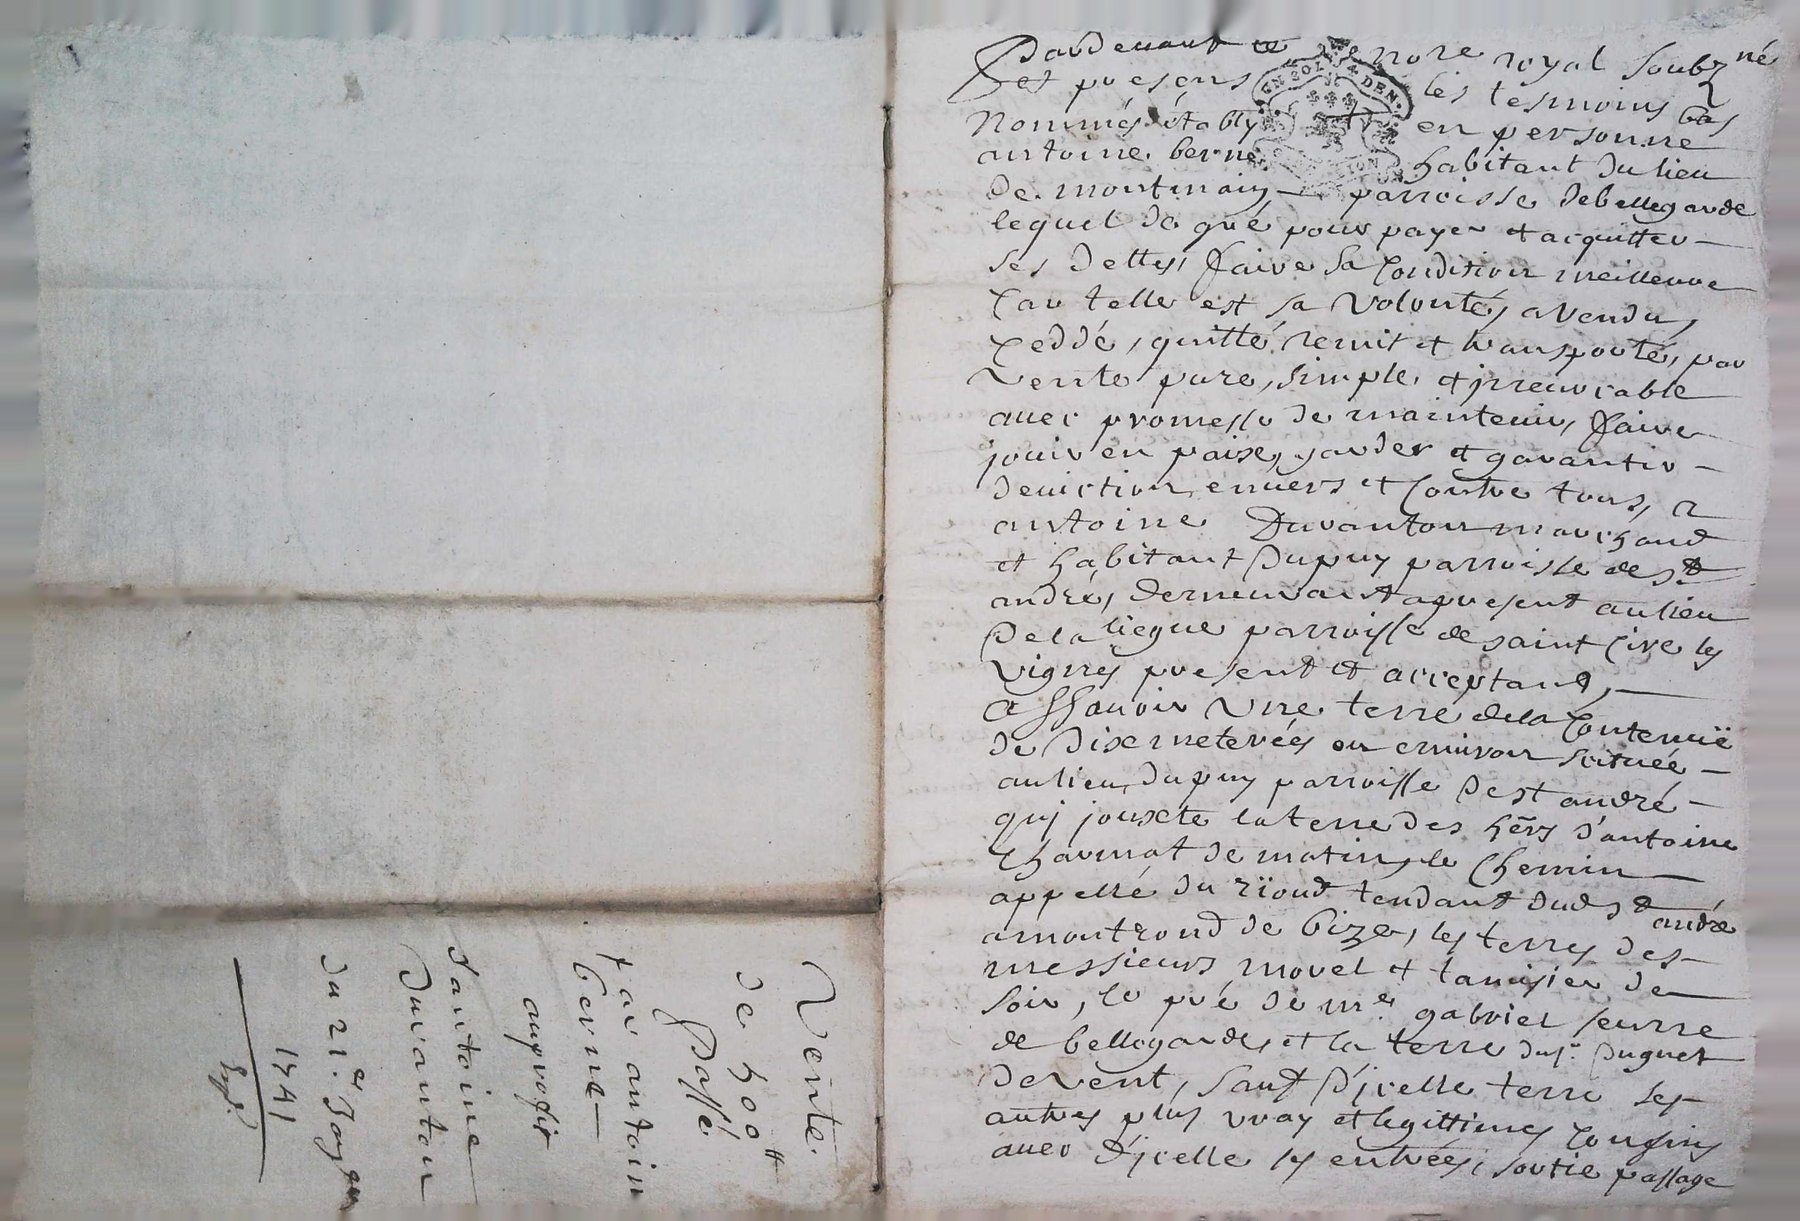 Vente.
de 400 tt
Passé
par antoin
berne
au profit
d'antoine
Duranton
du 21.er Janvier
1741
Pardevant le no.re royal soubz.né
et presens les tesmoins bas
Nommés établÿ en personne
antoine berne habitant du lieu
de montmain parroisse de bellegarde
lequel de gré pour payer et acquitter
ses dettes, faire sa Condition meilleure
Car telle est sa volonté, a vendu,
Ceddé, quitté, remit et transporté, par
vente pure, simple, et jrreuocable
auec promesse de maintenir, faire
jouir en paise, garder et garantir
deuiction, enuers et Contre tous, a
antoine Duranton marchand
et habitant Dupuy parroisse de st
andré, demeurant apresent au lieu
de la liegue parroisse de saint Cire les
vignes present et acceptant,
assauoir une terre de la Contenuë
de dix meterées ou enuiron scituée
au lieu du puy parroisse de st andré
quj jouxte la terre des hers d'antoine
Charmat de matin, le Chemin
appellé du rïoud tendant dud st andré
a montrond de bize, les terres des
messieurs morel et tamisier de
soir, le pré de me. gabriel seurre
de bellegarde, et la terre du sr. Puguet
de vent, sauf d'jcelle terre ses
autres plus vray et legittimes Confins
auec d'jcelle les entrées, sortie passage
EN 2 SOL 4 DEN.